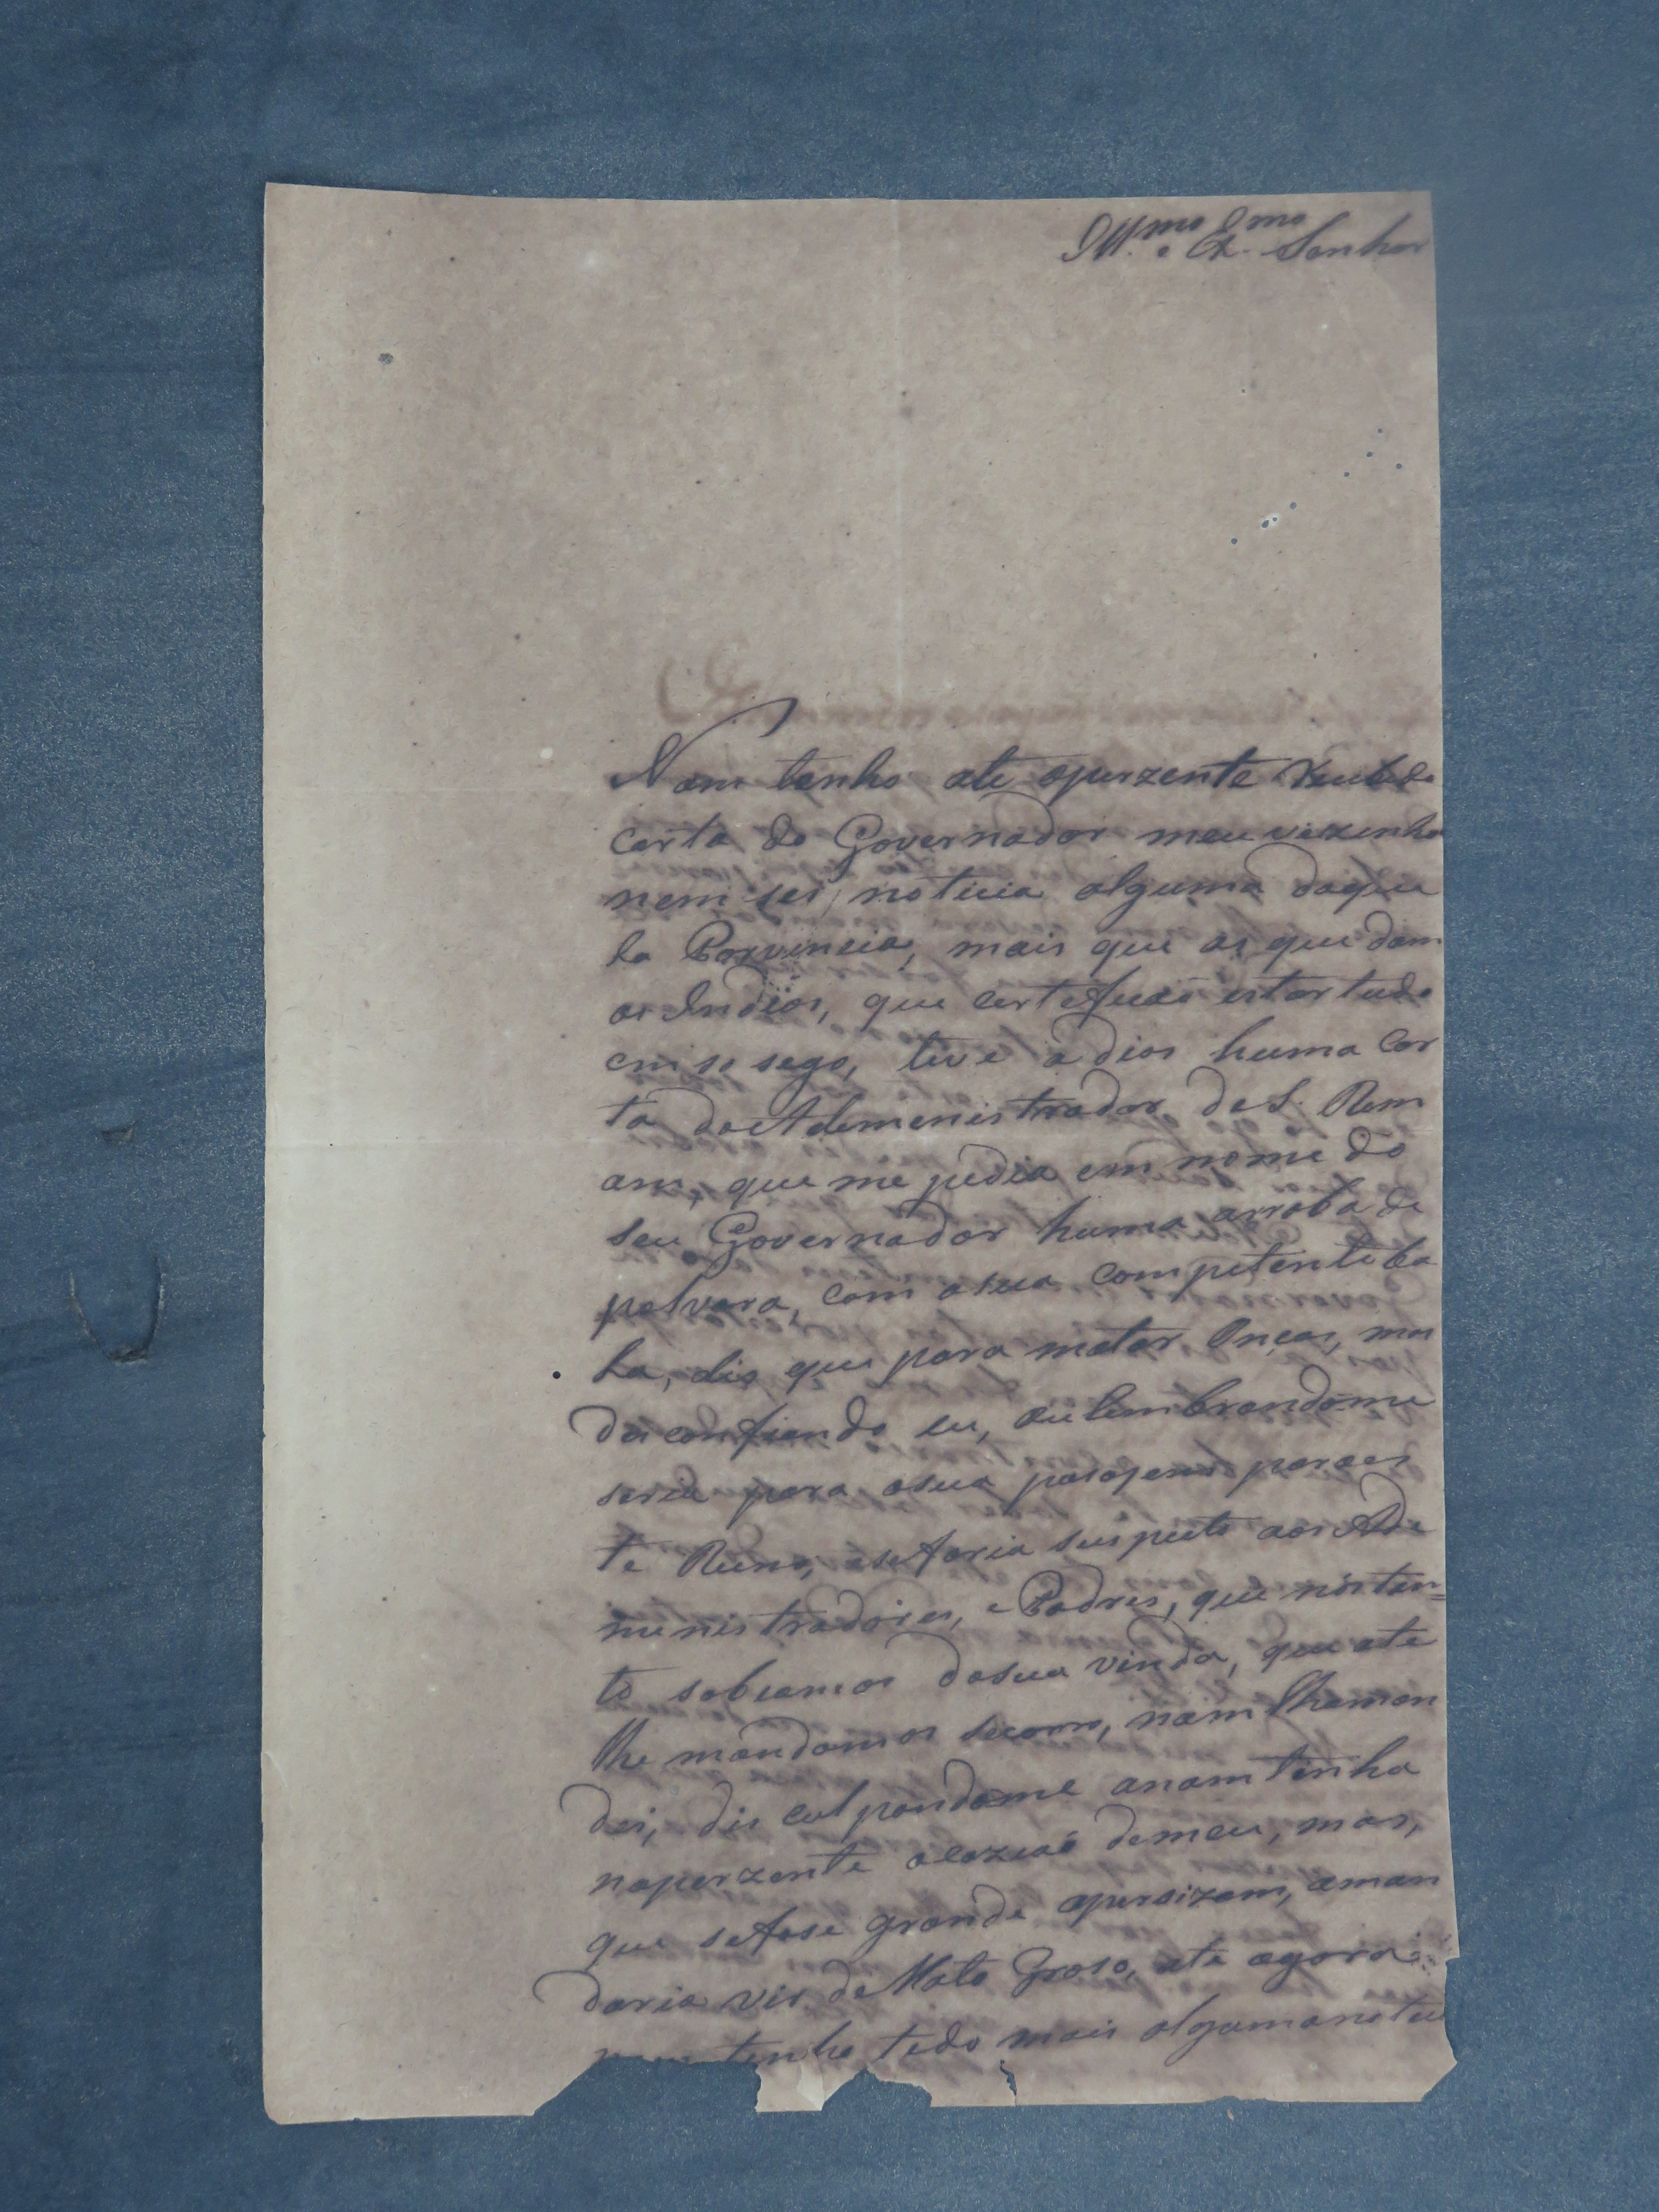 Ill.mo e Ex.mo Senhor
Nam tenho ate operzente Recebido
carta do Governador meu vezinho
nem sei noticia alguma daque
la Porvincia, mais que as que dam
os Indios, que certeficaõ estar tudo
em so sego, tive a dias huma Car
ta do Ademenistrador de S. Ram
am, que me pedia em nome do
seu Governador huma arroba de
polvora, com a sua competente ba
la, dis que para matar Onças, mas
desconfiando eu, ou lembrandome
seria para asua pasagem para es
te Reino, e se faria suspeito aos Ade
menistradores, e Padres, que nós tan=
to sabiamos dasua vinda, que ate
lhe mandamos socorro, nam lhaman
dei, dis culpandome anam tinha
naperzente ocaziaõ demeu, mas,
que sefose grande apersizam, aman
daria vir de Mato Groso, ate agora
nam tenho tido mais algumanotici